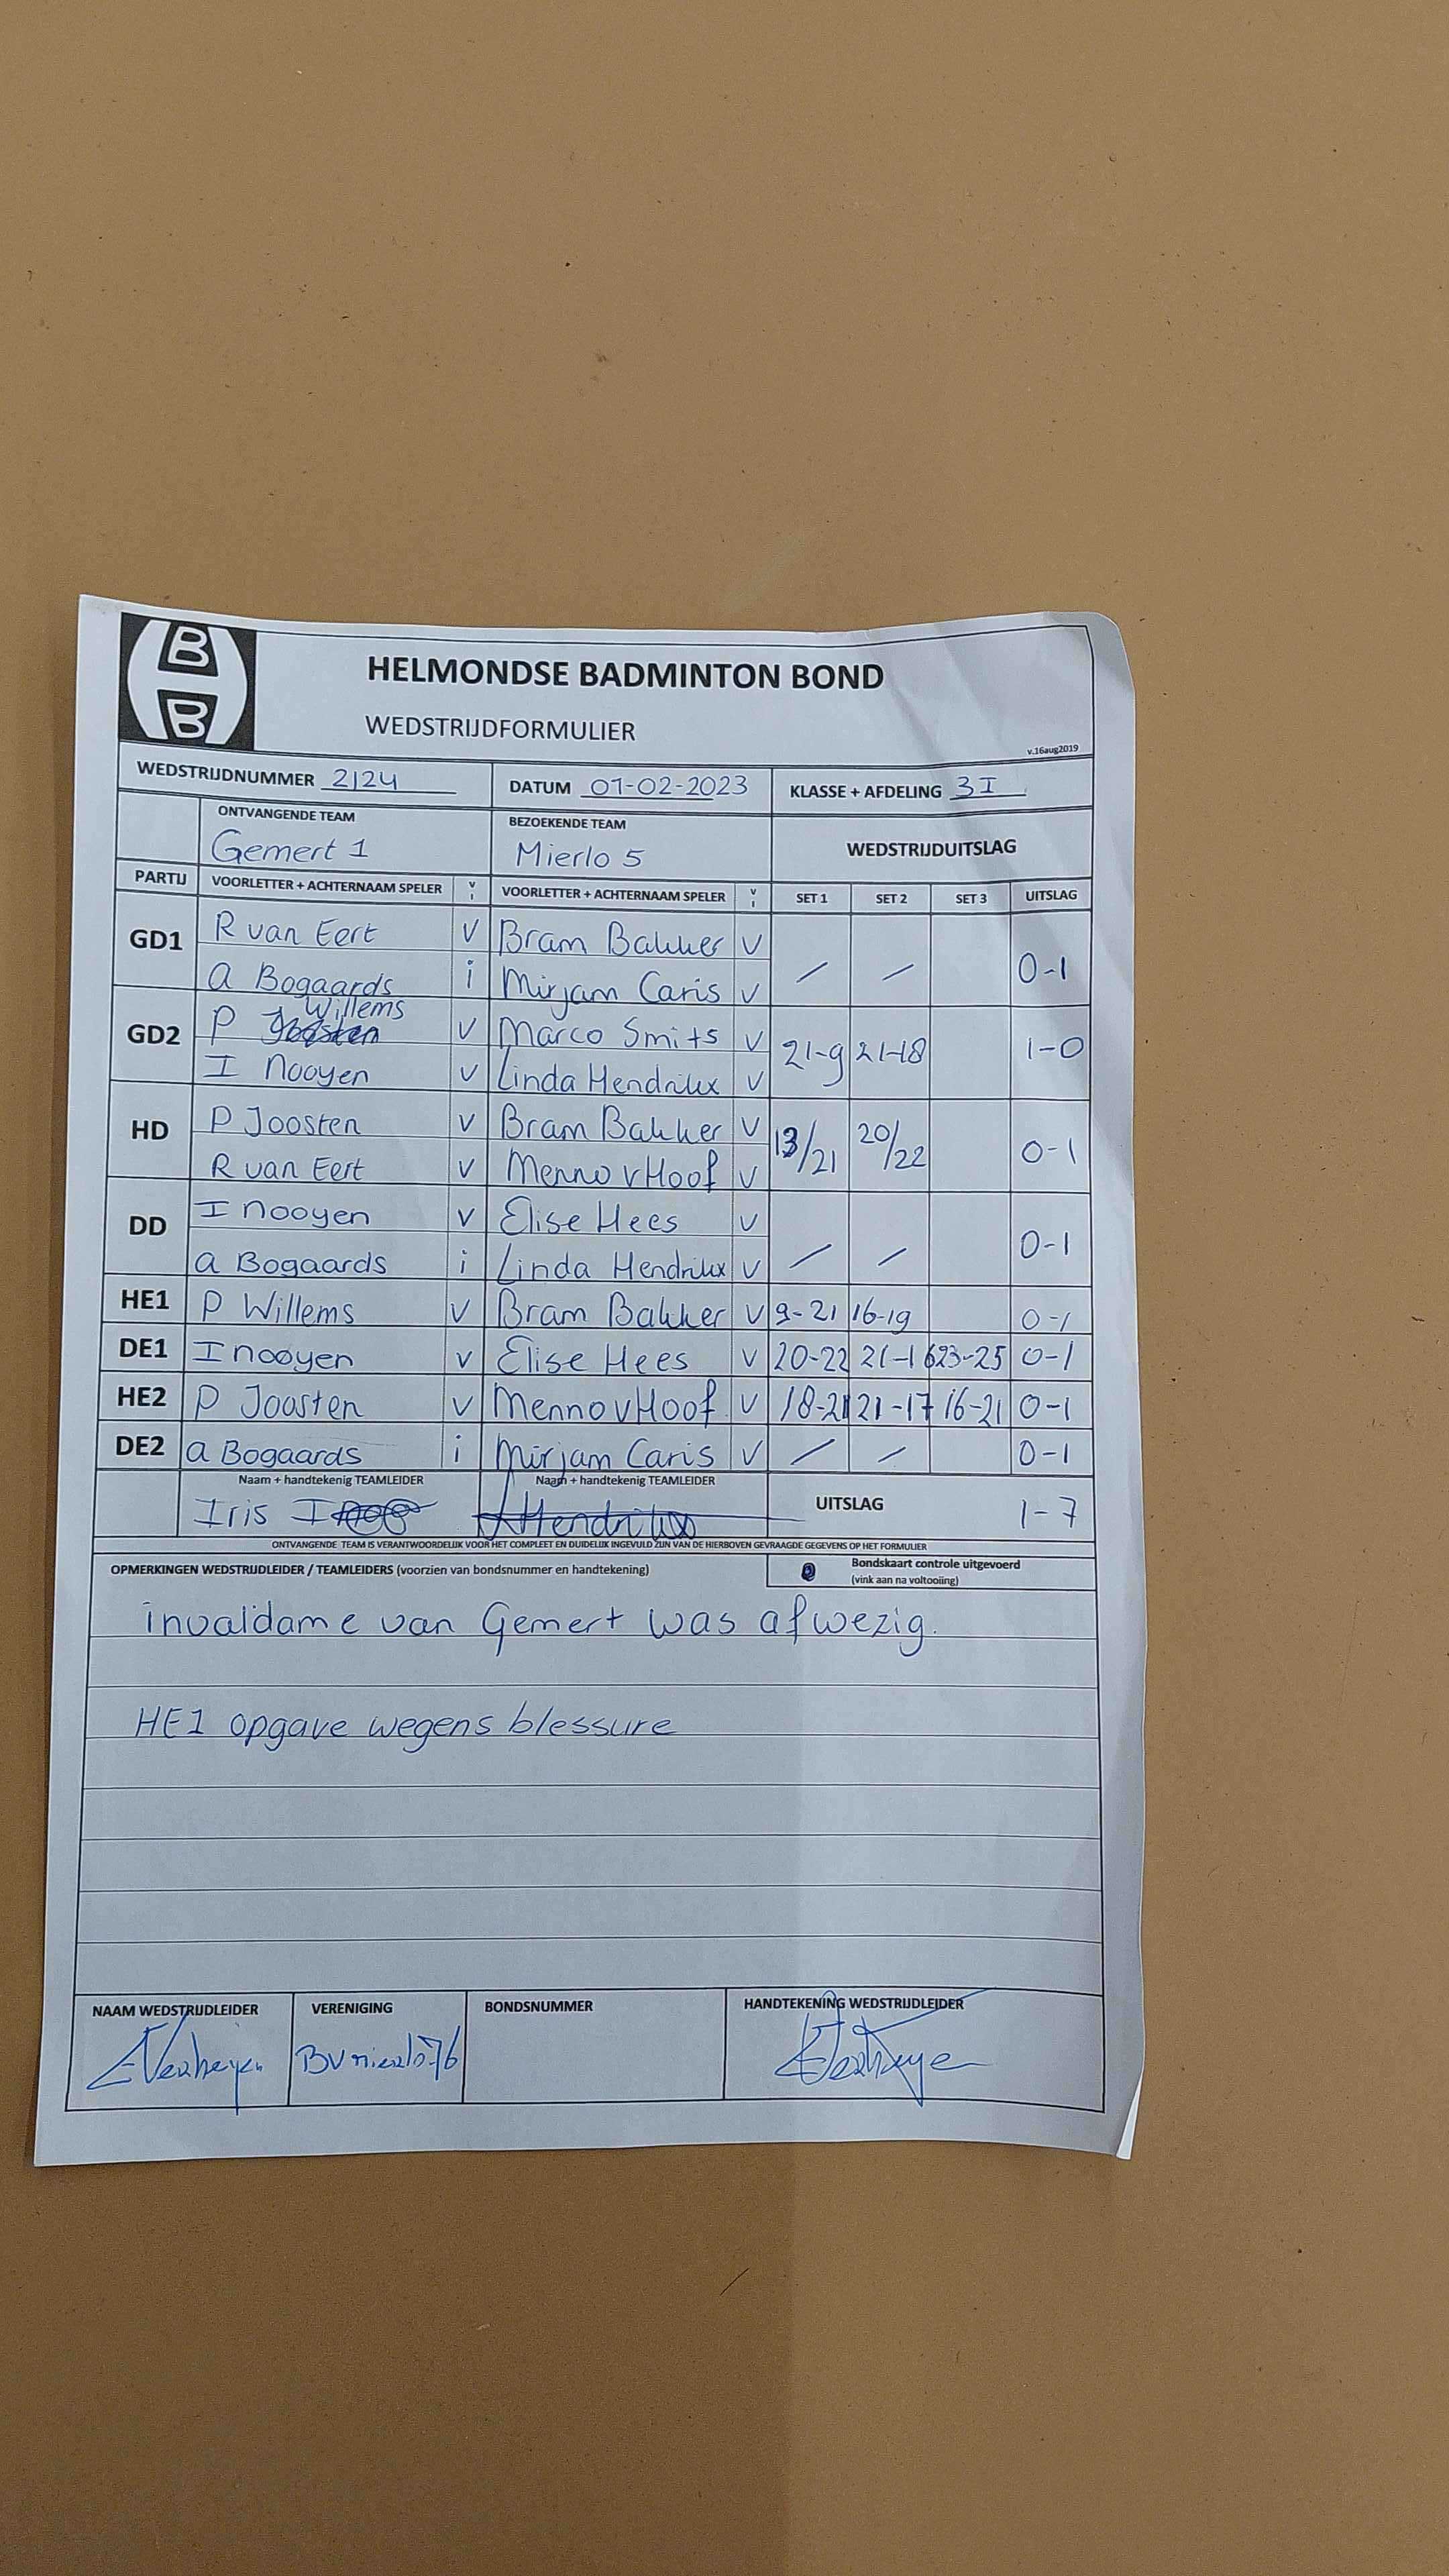 B
B
HELMONDSE BADMINTON BOND
WEDSTRIJDFORMULIER
v.16aug2019
WEDSTRIJDNUMMER 2124 DATUM 01-02-2023 KLASSE + AFDELING 3I
ONTVANGENDE TEAM BEZOEKENDE TEAM WEDSTRIJDUITSLAG
Gemert 1 Mierlo 5
PARTIJ VOORLETTER + ACHTERNAAM SPELER V I VOORLETTER + ACHTERNAAM SPELER V I SET 1 SET 2 SET 3 UITSLAG
GD1 R van Eert V Bram Bakker V / / 0-1
a Bogaards i Mirjam Caris V
GD2 P Willems V Marco Smits V 21-9 21-18 1-0
I Nooyen V Linda Hendrikx V
HD P Joosten V Bram Bakker V 13/21 20/22 0-1
R van Eert V Menno v Hoof V
DD I nooyen V Elise Hees V / / 0-1
a Bogaards i Linda Hendrikx V
HE1 P Willems V Bram Bakker V 9-21 16-19 0-1
DE1 I nooyen V Elise Hees V 20-22 21-16 23-25 0-1
HE2 P Joosten V Menno v Hoof V 18-21 21-17 16-21 0-1
DE2 a Bogaards i Mirjam Caris V / / 0-1
Naam + handtekenig TEAMLEIDER Naam + handtekenig TEAMLEIDER
Iris Hendrikx UITSLAG 1-7
ONTVANGENDE TEAM IS VERANTWOORDELIJK VOOR HET COMPLEET EN DUIDELIJK INGEVULD ZIJN VAN DE HIERBOVEN GEVRAAGDE GEGEVENS OP HET FORMULIER
OPMERKINGEN WEDSTRIJDLEIDER / TEAMLEIDERS (voorzien van bondsnummer en handtekening) Bondskaart controle uitgevoerd
(vink aan na voltooiing)
invaldame van Gemert was afwezig.
HE1 opgave wegens blessure
NAAM WEDSTRIJDLEIDER VERENIGING BONDSNUMMER HANDTEKENING WEDSTRIJDLEIDER
BV mierlo'76